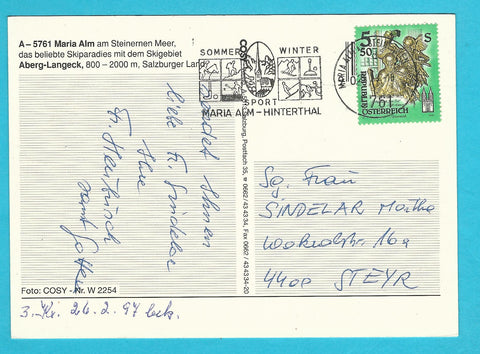 A – 5761 Maria Alm am Steinernen Meer,
das beliebte Skiparadies mit dem Skigebiet
Aberg-Langeck, 800 – 2000 m, Salzburger Land
SOMMER WINTER
SPORT
MARIA ALM – HINTERTHAL
5 S
50
ÖSTERREICH
sendet Ihnen
liebe Fr. Sindelar
Ihre
Fr.
samt Gatten
COSY
Salzburg, Postfach 35, ☎ 0662/43 43 34, Fax 0662/43 43 34-20
Sg. Frau
SINDELAR Martha
16a
4400 STEYR
Foto: COSY - Nr. W 2254
26.2.97